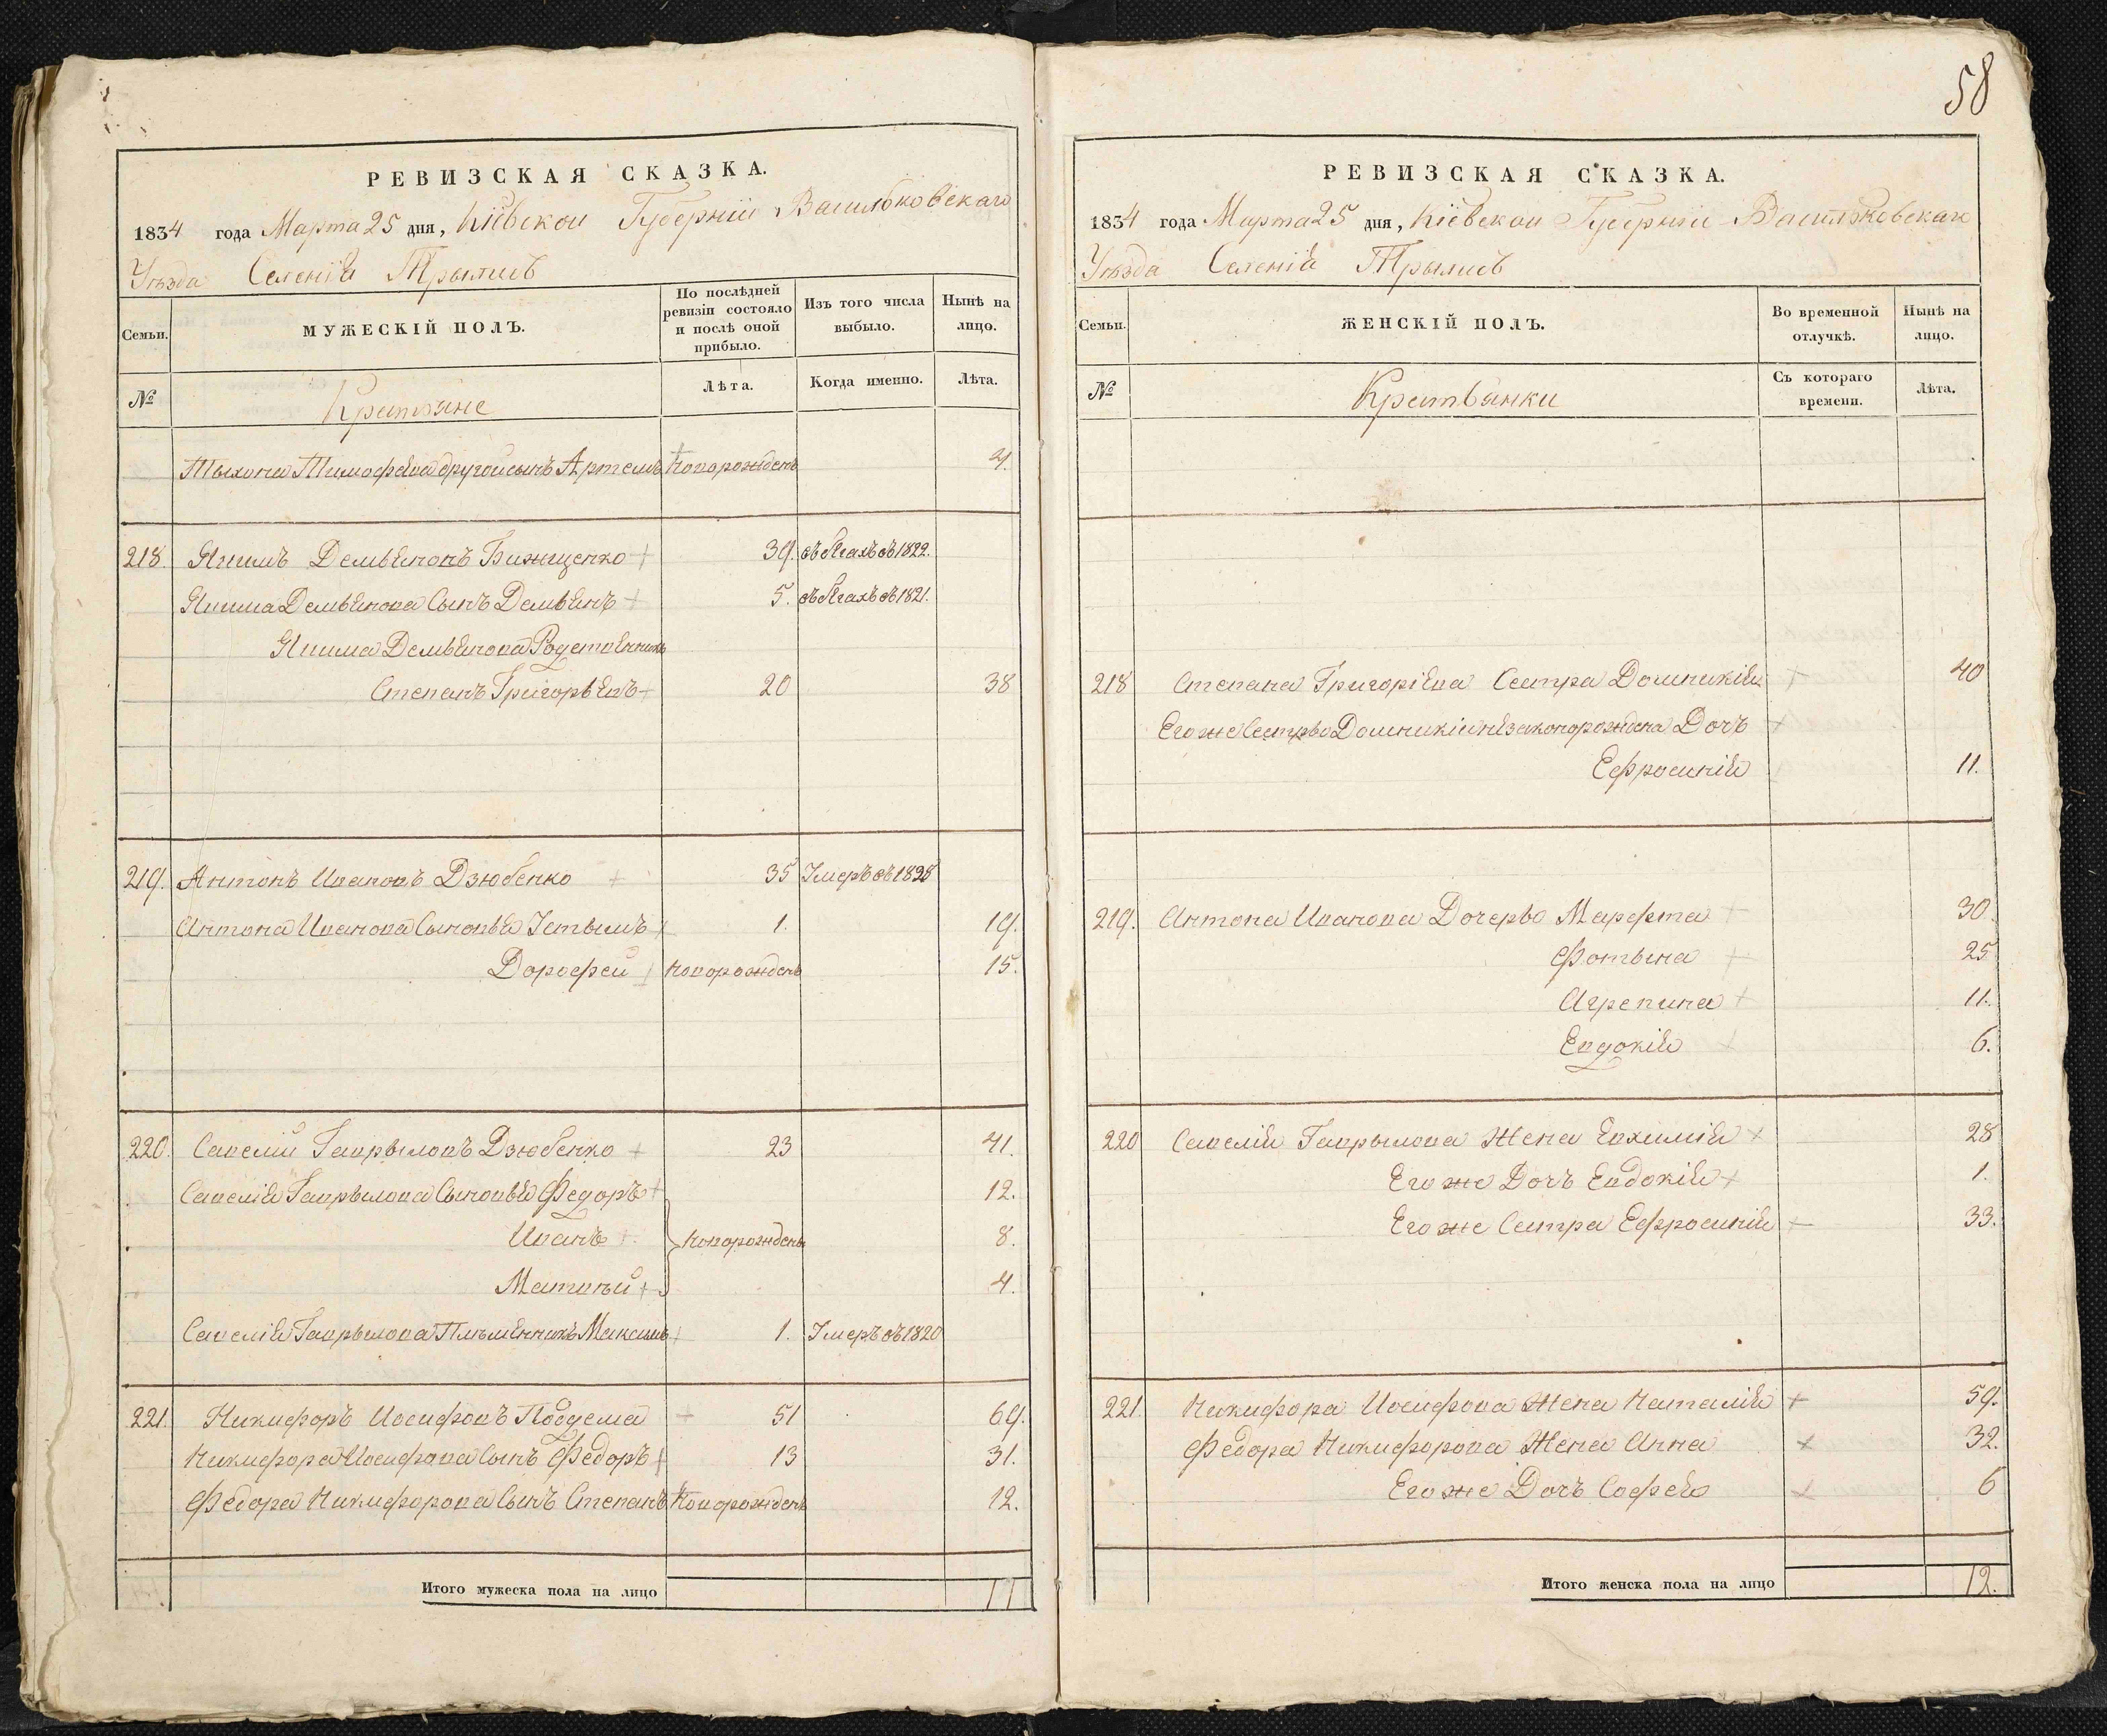 РЕВИЗСКАЯ СКАЗКА.
1834 года Марта 25 дня, Кіевской Губерніи Васильковскаго
Уѣзда Селенія Трылисъ
Семьи.
МУЖЕСКІЙ ПОЛЪ.
По послѣдней ревизіи состояло и послѣ оной прибыло.
Изъ того числа выбыло.
Нынѣ на лицо.
№
Крестьяне
Лѣта.
Когда именно.
Лѣта.
Тыхона Тимофѣева другой сынъ Артемъ новорожденъ 4.
218. Якимъ Демьяновъ 39. въ бѣгахъ съ 1822.
Якима Демьянова Сынъ Демьянъ 5. въ бѣгахъ съ 1821.
Якима Демьянова Родственникъ
Степанъ Григорьевъ 20 38
219. Антонъ Ивановъ Дзюбенко 35 Умеръ въ 1828
Антона Иванова Сыновья Устымъ 1. 19.
Дорофей новорожденъ 15.
220. Савелій Гаврыловъ Дзюбенко 23 41.
Савелія Гаврылова Сыновья Федоръ 12.
Иванъ новорожденъ 8.
Матвѣй 4.
Савелія Гаврылова Племянникъ Максимъ 1. Умеръ въ 1820
221. Никифоръ Иосифовъ 51 69.
Никифора Иосифова Сынъ Федоръ 13 31.
Федора Никифорова Сынъ Степанъ Новорожденъ 12.
Итого мужеска пола на лицо 11
58
РЕВИЗСКАЯ СКАЗКА.
1834 года Марта 25 дня, Кіевской Губерніи Васильковскаго
Уѣзда Селенія Трылисъ
Семьи.
ЖЕНСКІЙ ПОЛЪ.
Во временной отлучкѣ.
Нынѣ на лицо.
№
Крестьянки
Съ котораго времени.
Лѣта.
218 Степана Григоріева Сестра Домникія 40
Его же Сестры Домникіи незаконорождена Дочь
Ефросинія 11.
219. Антона Иванова Дочеры Марфта 30.
Фотына 25.
Агрепина 11.
Евдокія 6.
220 Савелія Гаврылова Жена Евхимія 28
Его же Дочь Евдокія 1.
Его же Сестра Ефросинія 33.
221. Никифора Иосифова Жена Наталія 59.
Федора Никифорова Жена Анна 32.
Его же Дочь Софья 6
Итого женска пола на лицо 12.